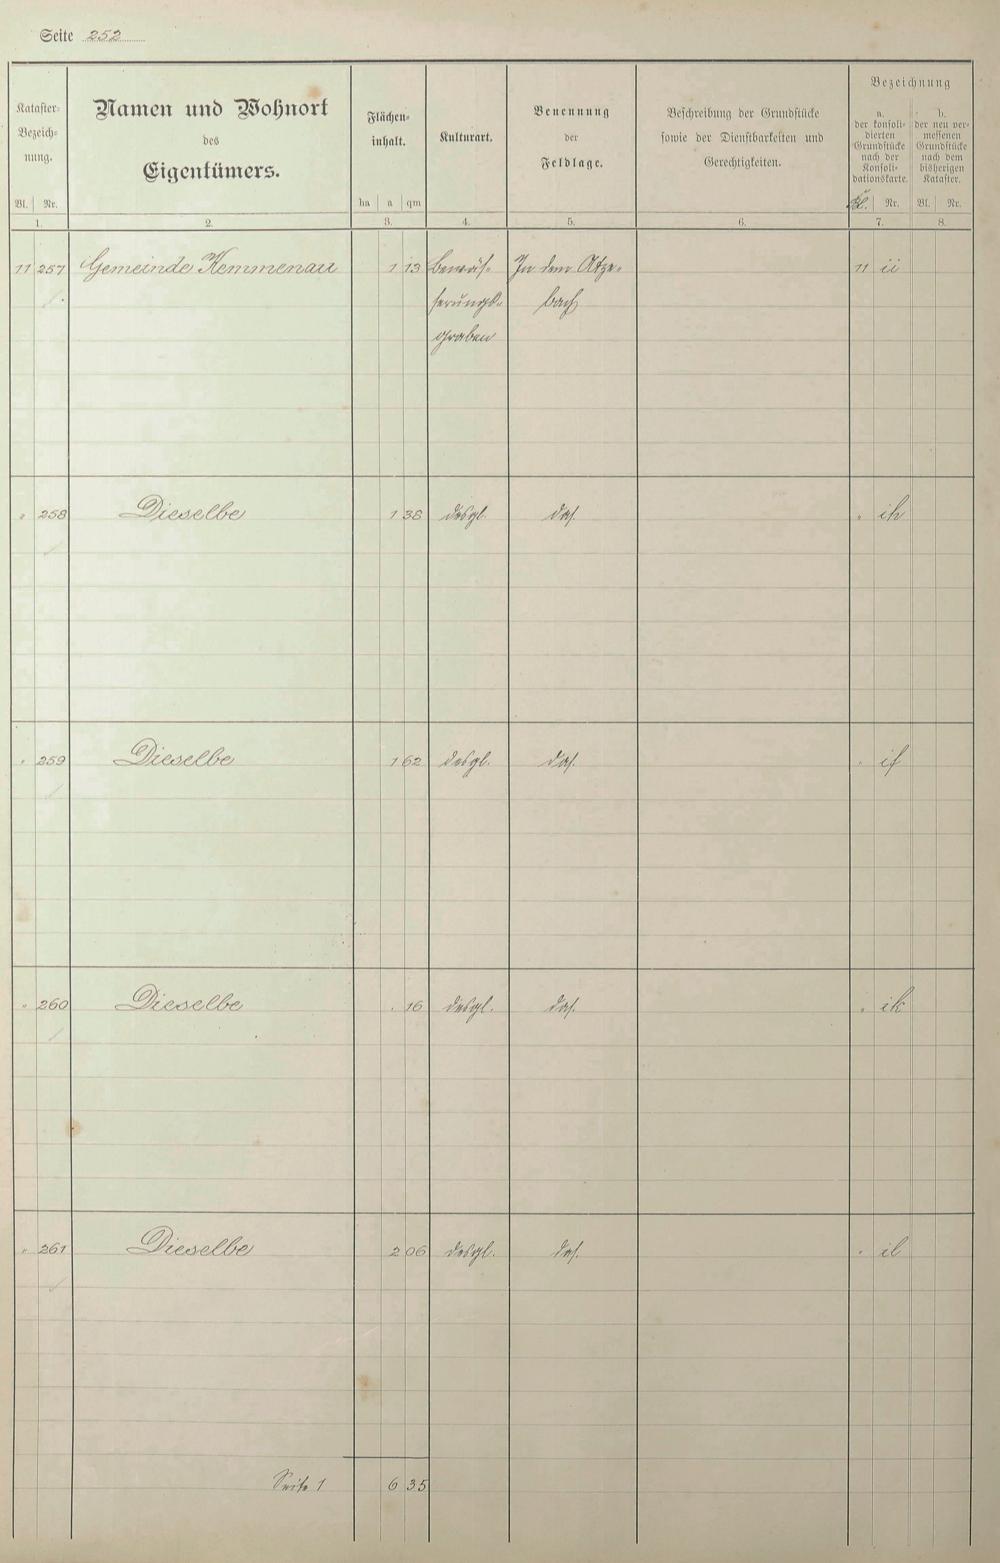 Seite 252
Kataster-
Bezeich-
nung.
Bl. Nr.
1.
Namen und Wohnort
des
Eigentümers.
2.
Flächen-
inhalt.
ha a qm
3.
Kulturart.
4.
Benennung
der
Feldlage.
5.
Beschreibung der Grundstücke
sowie der Dienstbarkeiten und
Gerechtigkeiten.
6.
Bezeichnung
a.
der konsoli-
dierten
Grundstücke
nach der
Konsoli-
dationskarte.
Bl. Nr.
7.
b.
der neu ver-
messenen
Grundstücke
nach dem
bisherigen
Kataster.
Bl. Nr.
8.
11 257 Gemeinde Kemmenau 1 13 Bewäs- In dem Atze- 11 ii
serungs- bach
graben
" 258 Dieselbe 1 38 desgl. das. " ih
" 259 Dieselbe 1 62 desgl. das. " if
" 260 Dieselbe . 16 desgl. das. " ik
" 261 Dieselbe 2 06 desgl. das. " il
Seite 1 6 35